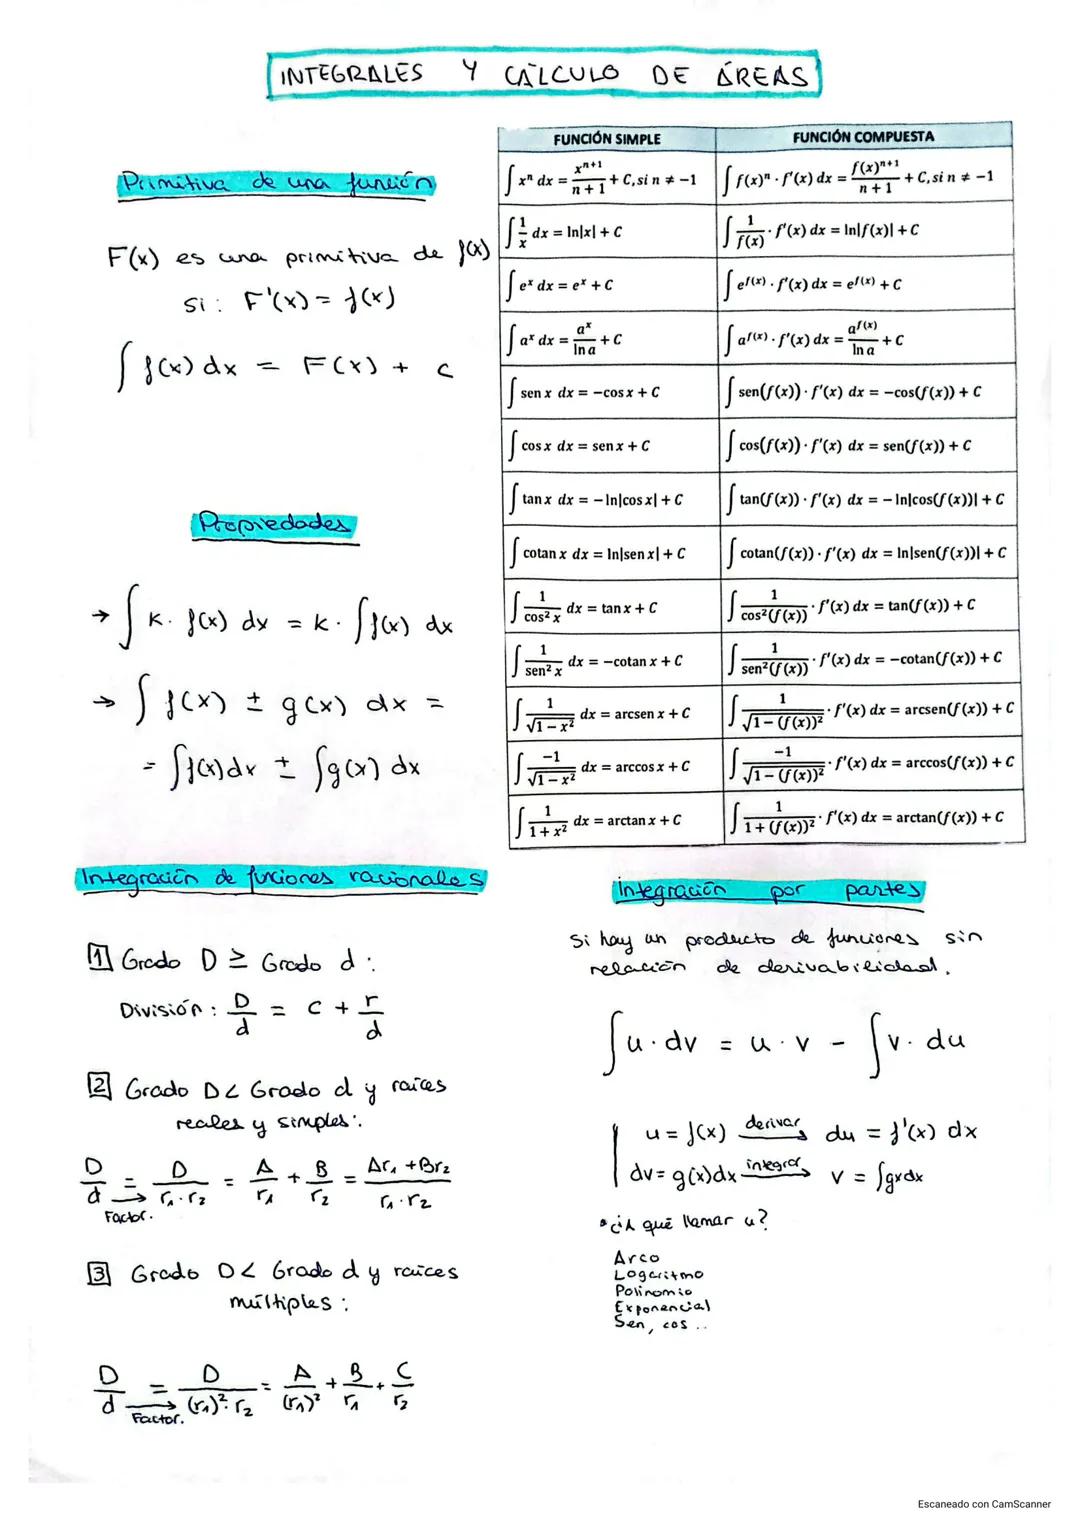 INTEGRALES Y CÁLCULO DE ÁREAS
Primitiva de una función
F(x) es una primitiva de f(x)
si: F'(x) = f(x)
∫ f(x) dx = F(x) + c
Propiedades
→ ∫ K · f(x) dx = k · ∫ f(x) dx
→ ∫ f(x) ± g(x) dx =
= ∫f(x)dx ± ∫g(x) dx
FUNCIÓN SIMPLE | FUNCIÓN COMPUESTA
∫ xⁿ dx = xⁿ⁺¹/(n + 1) + C, si n ≠ −1 | ∫ f(x)ⁿ · f'(x) dx = f(x)ⁿ⁺¹/(n + 1) + C, si n ≠ −1
∫ 1/x dx = ln|x| + C | ∫ 1/f(x) · f'(x) dx = ln|f(x)| + C
∫ eˣ dx = eˣ + C | ∫ e^f(x) · f'(x) dx = e^f(x) + C
∫ aˣ dx = aˣ/ln a + C | ∫ a^f(x) · f'(x) dx = a^f(x)/ln a + C
∫ sen x dx = −cos x + C | ∫ sen(f(x)) · f'(x) dx = −cos(f(x)) + C
∫ cos x dx = sen x + C | ∫ cos(f(x)) · f'(x) dx = sen(f(x)) + C
∫ tan x dx = −ln|cos x| + C | ∫ tan(f(x)) · f'(x) dx = −ln|cos(f(x))| + C
∫ cotan x dx = ln|sen x| + C | ∫ cotan(f(x)) · f'(x) dx = ln|sen(f(x))| + C
∫ 1/cos² x dx = tan x + C | ∫ 1/cos²(f(x)) · f'(x) dx = tan(f(x)) + C
∫ 1/sen² x dx = −cotan x + C | ∫ 1/sen²(f(x)) · f'(x) dx = −cotan(f(x)) + C
∫ 1/√(1 − x²) dx = arcsen x + C | ∫ 1/√(1 − (f(x))²) · f'(x) dx = arcsen(f(x)) + C
∫ −1/√(1 − x²) dx = arccos x + C | ∫ −1/√(1 − (f(x))²) · f'(x) dx = arccos(f(x)) + C
∫ 1/(1 + x²) dx = arctan x + C | ∫ 1/(1 + (f(x))²) · f'(x) dx = arctan(f(x)) + C
Integración de funciones racionales
1 Grado D ≥ Grado d :
División : D/d = c + r/d
2 Grado D < Grado d y raíces
reales y simples :
D/d = D/(r₁ · r₂) = A/r₁ + B/r₂ = (Ar₁ + Br₂)/(r₁ · r₂)
→ Factor.
3 Grado D < Grado d y raíces
múltiples :
D/d = D/((r₁)² · r₂) = A/(r₁)² + B/r₁ + C/r₂
→ Factor.
integración por partes
Si hay un producto de funciones sin
relación de derivabilidad.
∫ u · dv = u · v − ∫ v · du
u = f(x) derivar → du = f'(x) dx
dv = g(x)dx integrar → v = ∫gxdx
• ¿A qué llamar u?
Arco
Logaritmo
Polinomio
Exponencial
Sen, cos ..
Escaneado con CamScanner